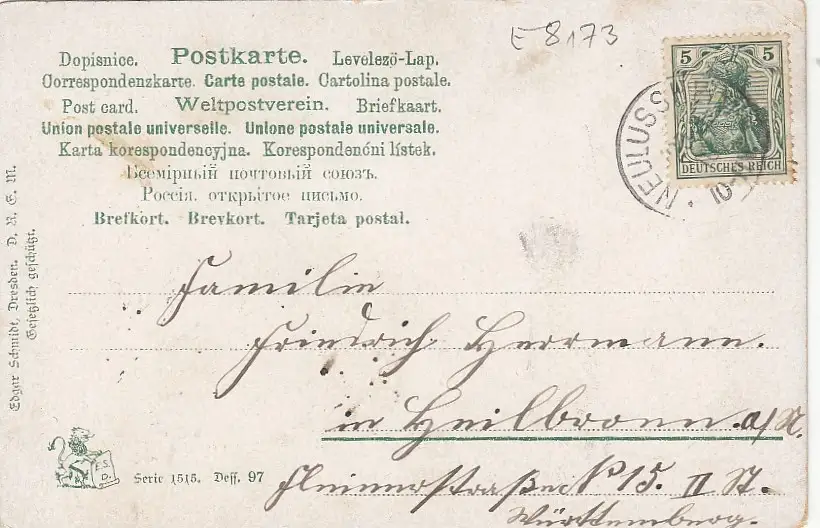 E 8173
Dopisnice. Postkarte. Levelezö-Lap.
Correspondenzkarte. Carte postale. Cartolina postale.
Post card. Weltpostverein. Briefkaart.
Union postale universelle. Unione postale universale.
Karta korespondencyjna. Korespondenćni lístek.
Всемірный почтовый союзъ.
Россія. открытое письмо.
Brefkort. Brevkort. Tarjeta postal.
5 5
DEUTSCHES REICH
NEULUSS
10
Familie
Friedrich Herrmann.
in Heilbronn a/N.
No 15. II St.
Württemberg.
Edgar Schmidt, Dresden. D. R. G. M.
Gesetzlich geschützt.
E.S.
D.
Serie 1515. Dess. 97